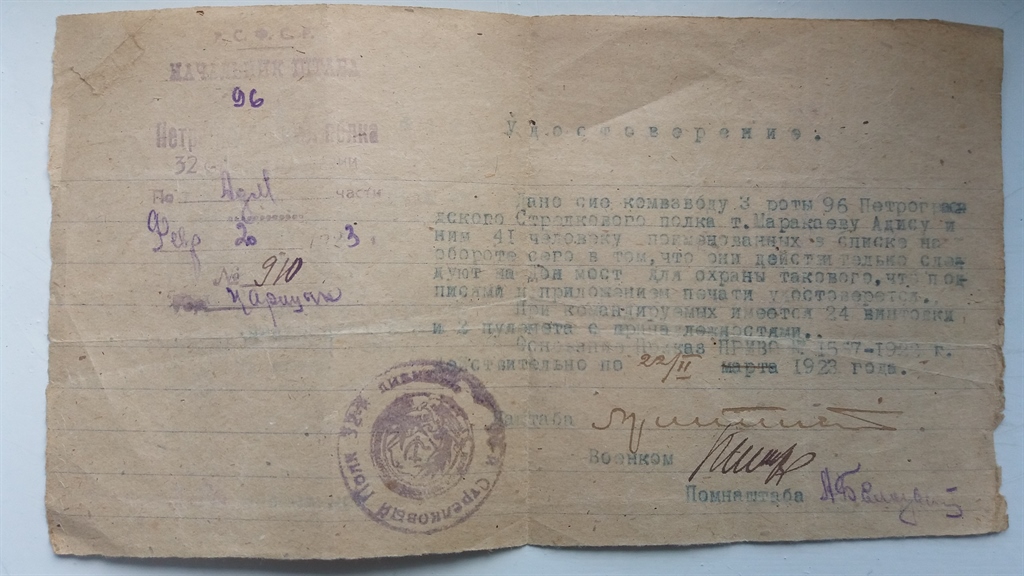 Р. С. Ф. С. Р.
НАЧАЛЬНИК ШТАБА
96
полка
32
По Адм части
Февр 20 1923
№ 910
Царицын
Удостоверение.
Дано сие комвзводу 3 роты 96 Петрогра
дского Стрелкового полка т. Маракаеву Адису и
ним 41 человеку поименованных в списке на
обороте сего в том, что они действительно сле
дуют на Дон мост для охраны такового, что под
писями и приложением печати удостоверется.
При командируемых имеется 24 винтовки
и 2 пулемета с принадлежностями.
Основание Приказ ПРИВО
действительно по 22/II марта 1923 года.
Наштаба
Военком
Помнаштаба
СТРЕЛКОВЫЙ ПОЛК 32-й ДИВИЗИИ